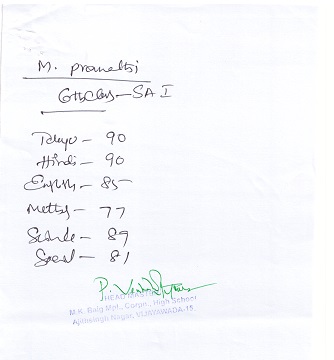 M. pranathi
6th Class - SA I
Telugu - 90
Hindi - 90
English - 85
Maths - 77
Science - 89
Social - 81
HEAD MASTER
M.K. Baig Mpl. Corpn. High School
Ajithsingh Nagar, VIJAYAWADA-15.